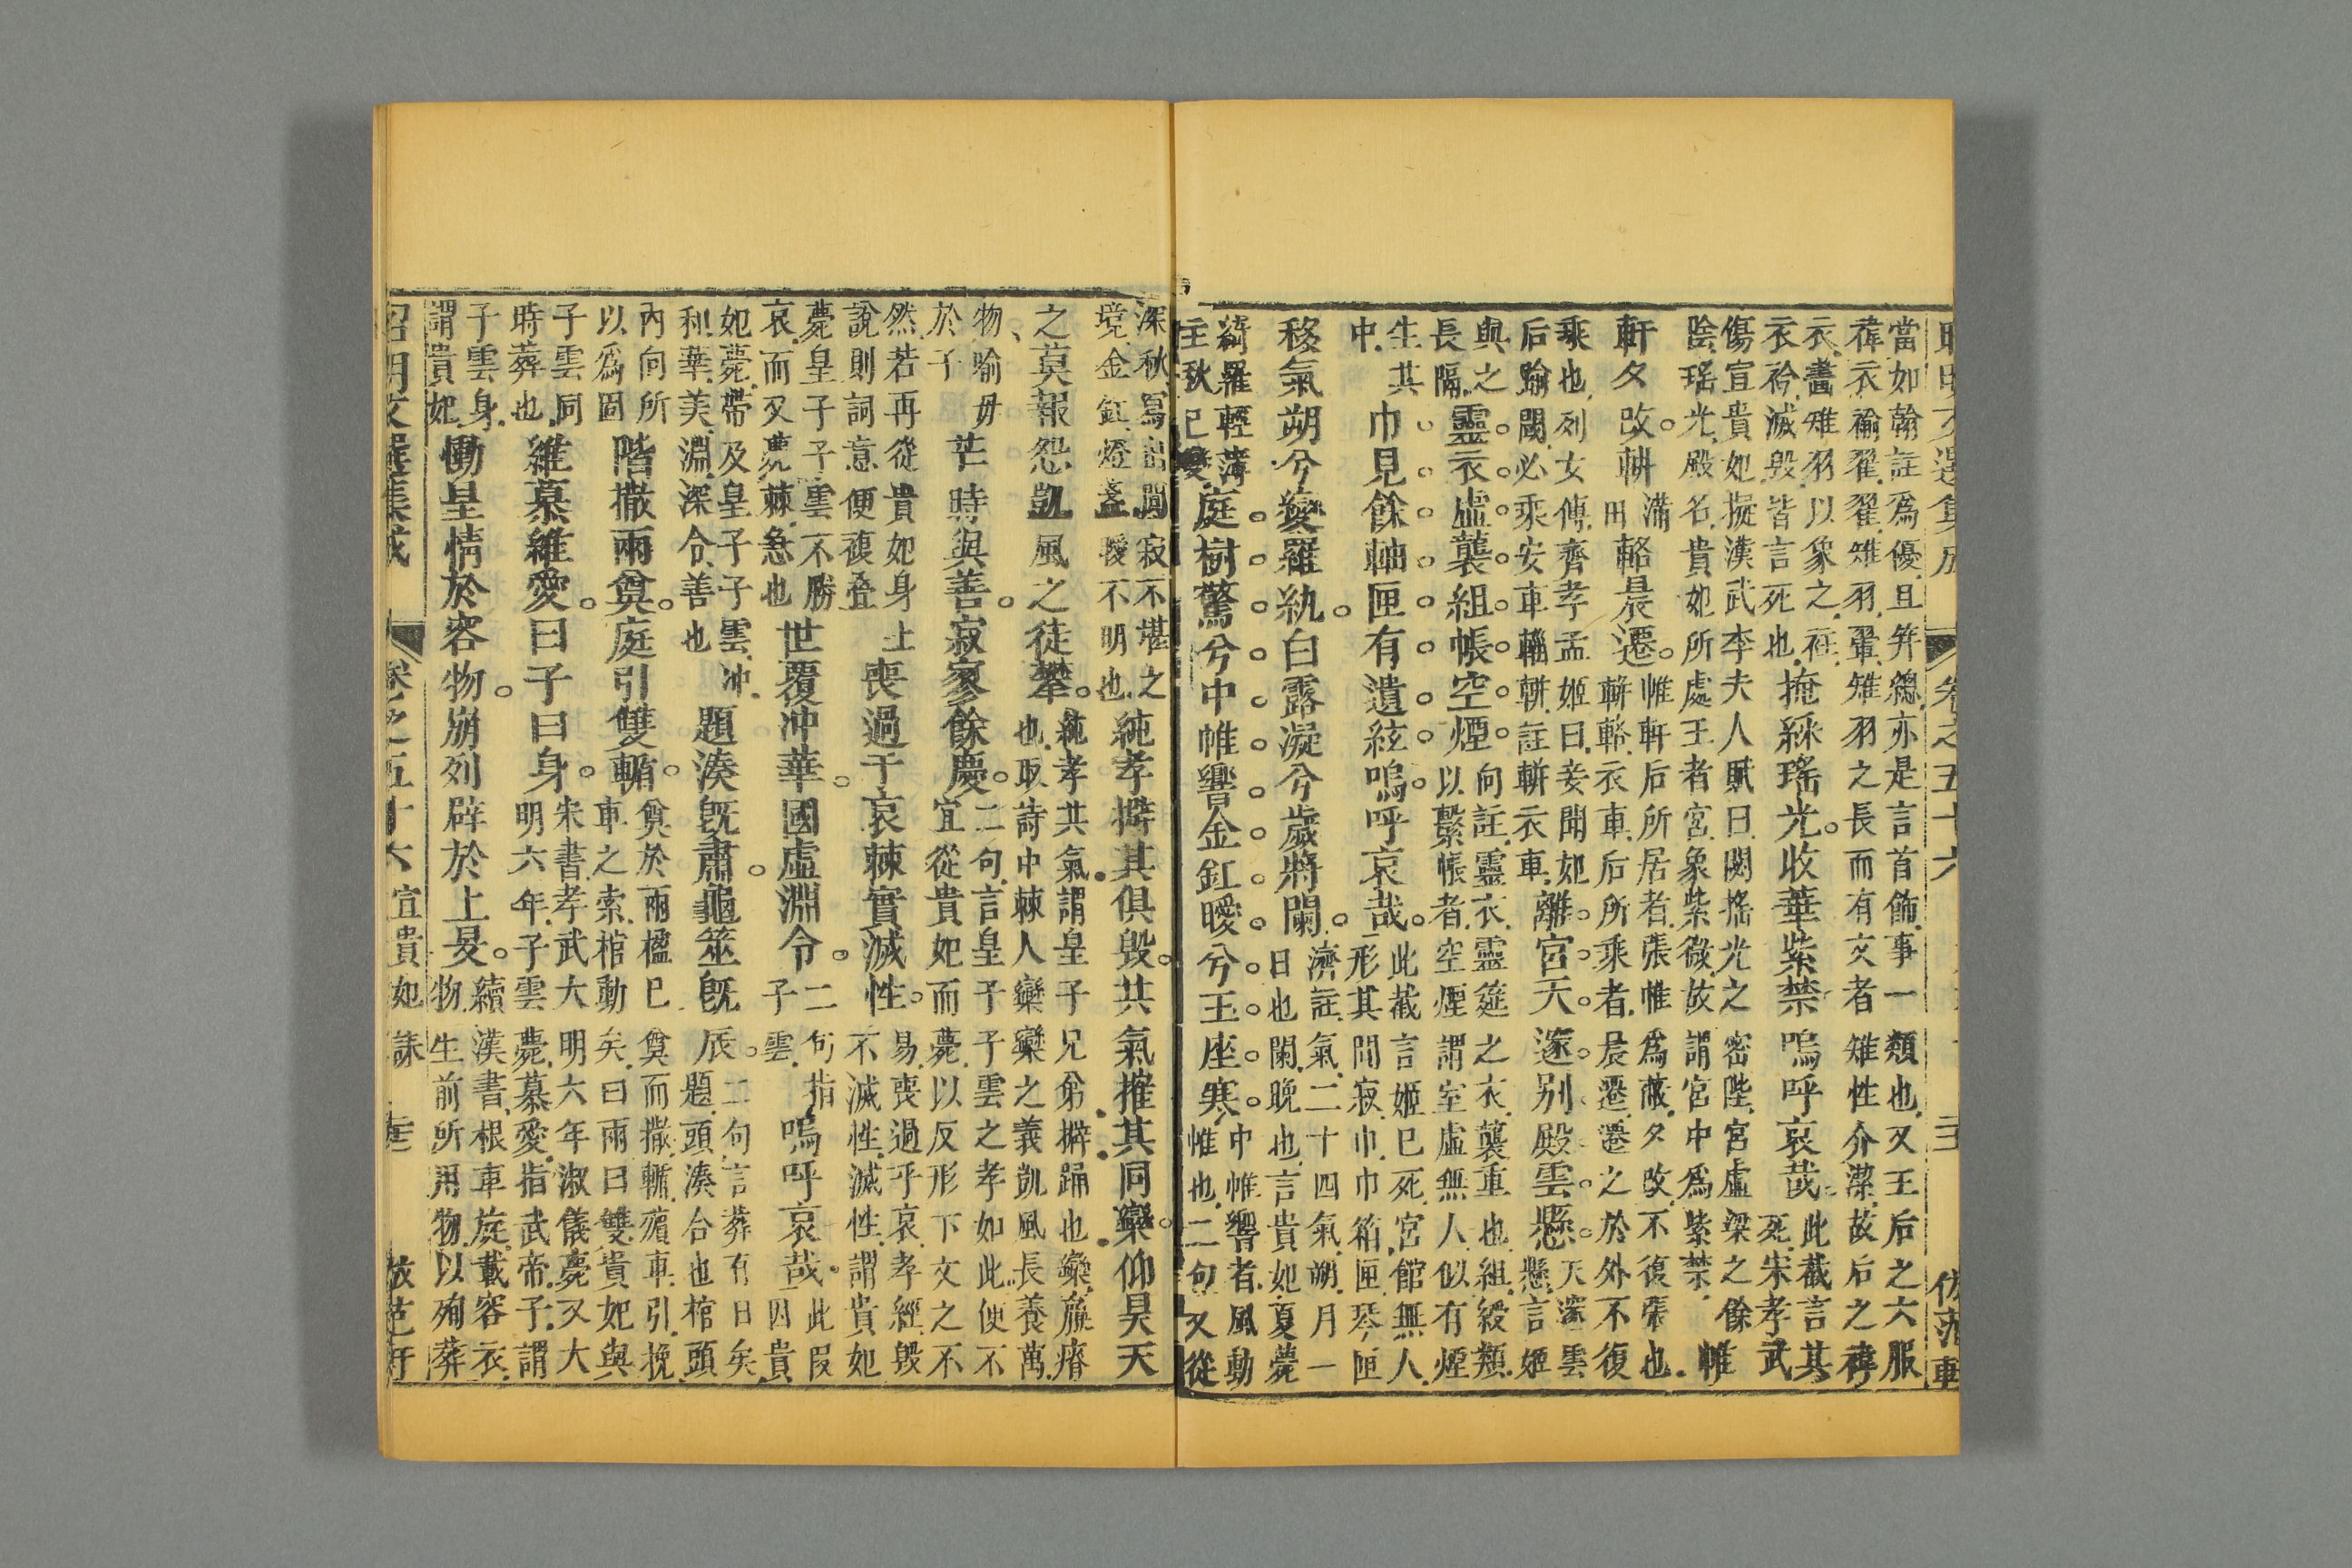 昭明文選集成　卷之五十六　三　仿范軒
當如翰註爲優且笄總亦是言首飾事一類也又王后之六服
褘衣褕翟翟雉羽翬雉羽之長而有文者雉性介潔故后之褘
衣畵雉羽以象之衽
衣衿滅毀皆言死也
掩綵瑤光收華紫禁嗚呼哀哉
此截言其
死宋孝武
傷宣貴妃擬漢武李夫人賦曰閟搖光之密陛宮虛梁之餘
陰瑤光殿名貴妃所處王者宮象紫微故謂宮中爲紫禁
帷
軒夕改軿
滿
田
輅晨遷
帷軒后所居者張帷爲蔽夕改不復張也
軿輅衣車后所乘者晨遷遷之於外不復
乘也列女傳齊孝孟姬曰妾聞妃
后踰閾必乘安車輜軿註軿衣車
離宮天邃别殿雲懸
天邃雲
懸言姬
與之
長隔
靈衣虛襲組帳空煙
向註靈衣靈筵之衣襲重也組綬類
以繫帳者空煙謂室虛無人似有煙
生其
中
巾見餘軸匣有遺絃嗚呼哀哉
此截言姬已死宮館無人
形其間寂巾巾箱匣琴匣
移氣朔兮變羅紈白露凝兮歲將闌
濟註氣二十四氣朔月一
日也闌晚也言貴妃夏薨
綺羅輕薄
主秋已變
庭樹驚兮中帷響金釭曖兮玉座寒
中帷響者風動
帷也二句又從
深秋寫出闃寂不堪之
境金釭燈盞曖不明也
純孝擗其俱毀共氣摧其同欒仰昊天
之莫報怨凱風之徒攀
純孝共氣謂皇子兄弟擗踊也欒羸瘠
也取詩中棘人欒欒之義凱風長養萬
物喻母
於子
茫時與善寂寥餘慶
二句言皇子子雲之孝如此便不
宜從貴妃而薨以反形下文之不
然若再從貴妃身上
說則詞意便複叠
喪過乎哀棘實滅性
易喪過乎哀孝經毀
不滅性滅性謂貴妃
薨皇子子雲不勝
哀而又薨棘急也
世覆沖華國虛淵令
二句指
子雲
嗚呼哀哉
此段
四貴
妃薨帶及皇子子雲冲
和華美淵深令善也
題湊旣肅龜筮旣辰
二句言葬有日矣
題頭湊合也棺頭
內向所
以爲固
階撒兩奠庭引雙輴
奠於兩楹已奠而撒輴殯車引挽
車之索棺動矣曰兩曰雙貴妃與
子雲同
時葬也
維慕維愛曰子曰身
宋書孝武大明六年淑儀薨又大
明六年子雲薨慕愛指武帝子謂
子雲身
謂貴妃
慟皇情於容物崩列辟於上旻
續漢書根車旋載容衣
物生前所用物以殉葬
昭明文選集成　卷之五十六　宣貴妃誄